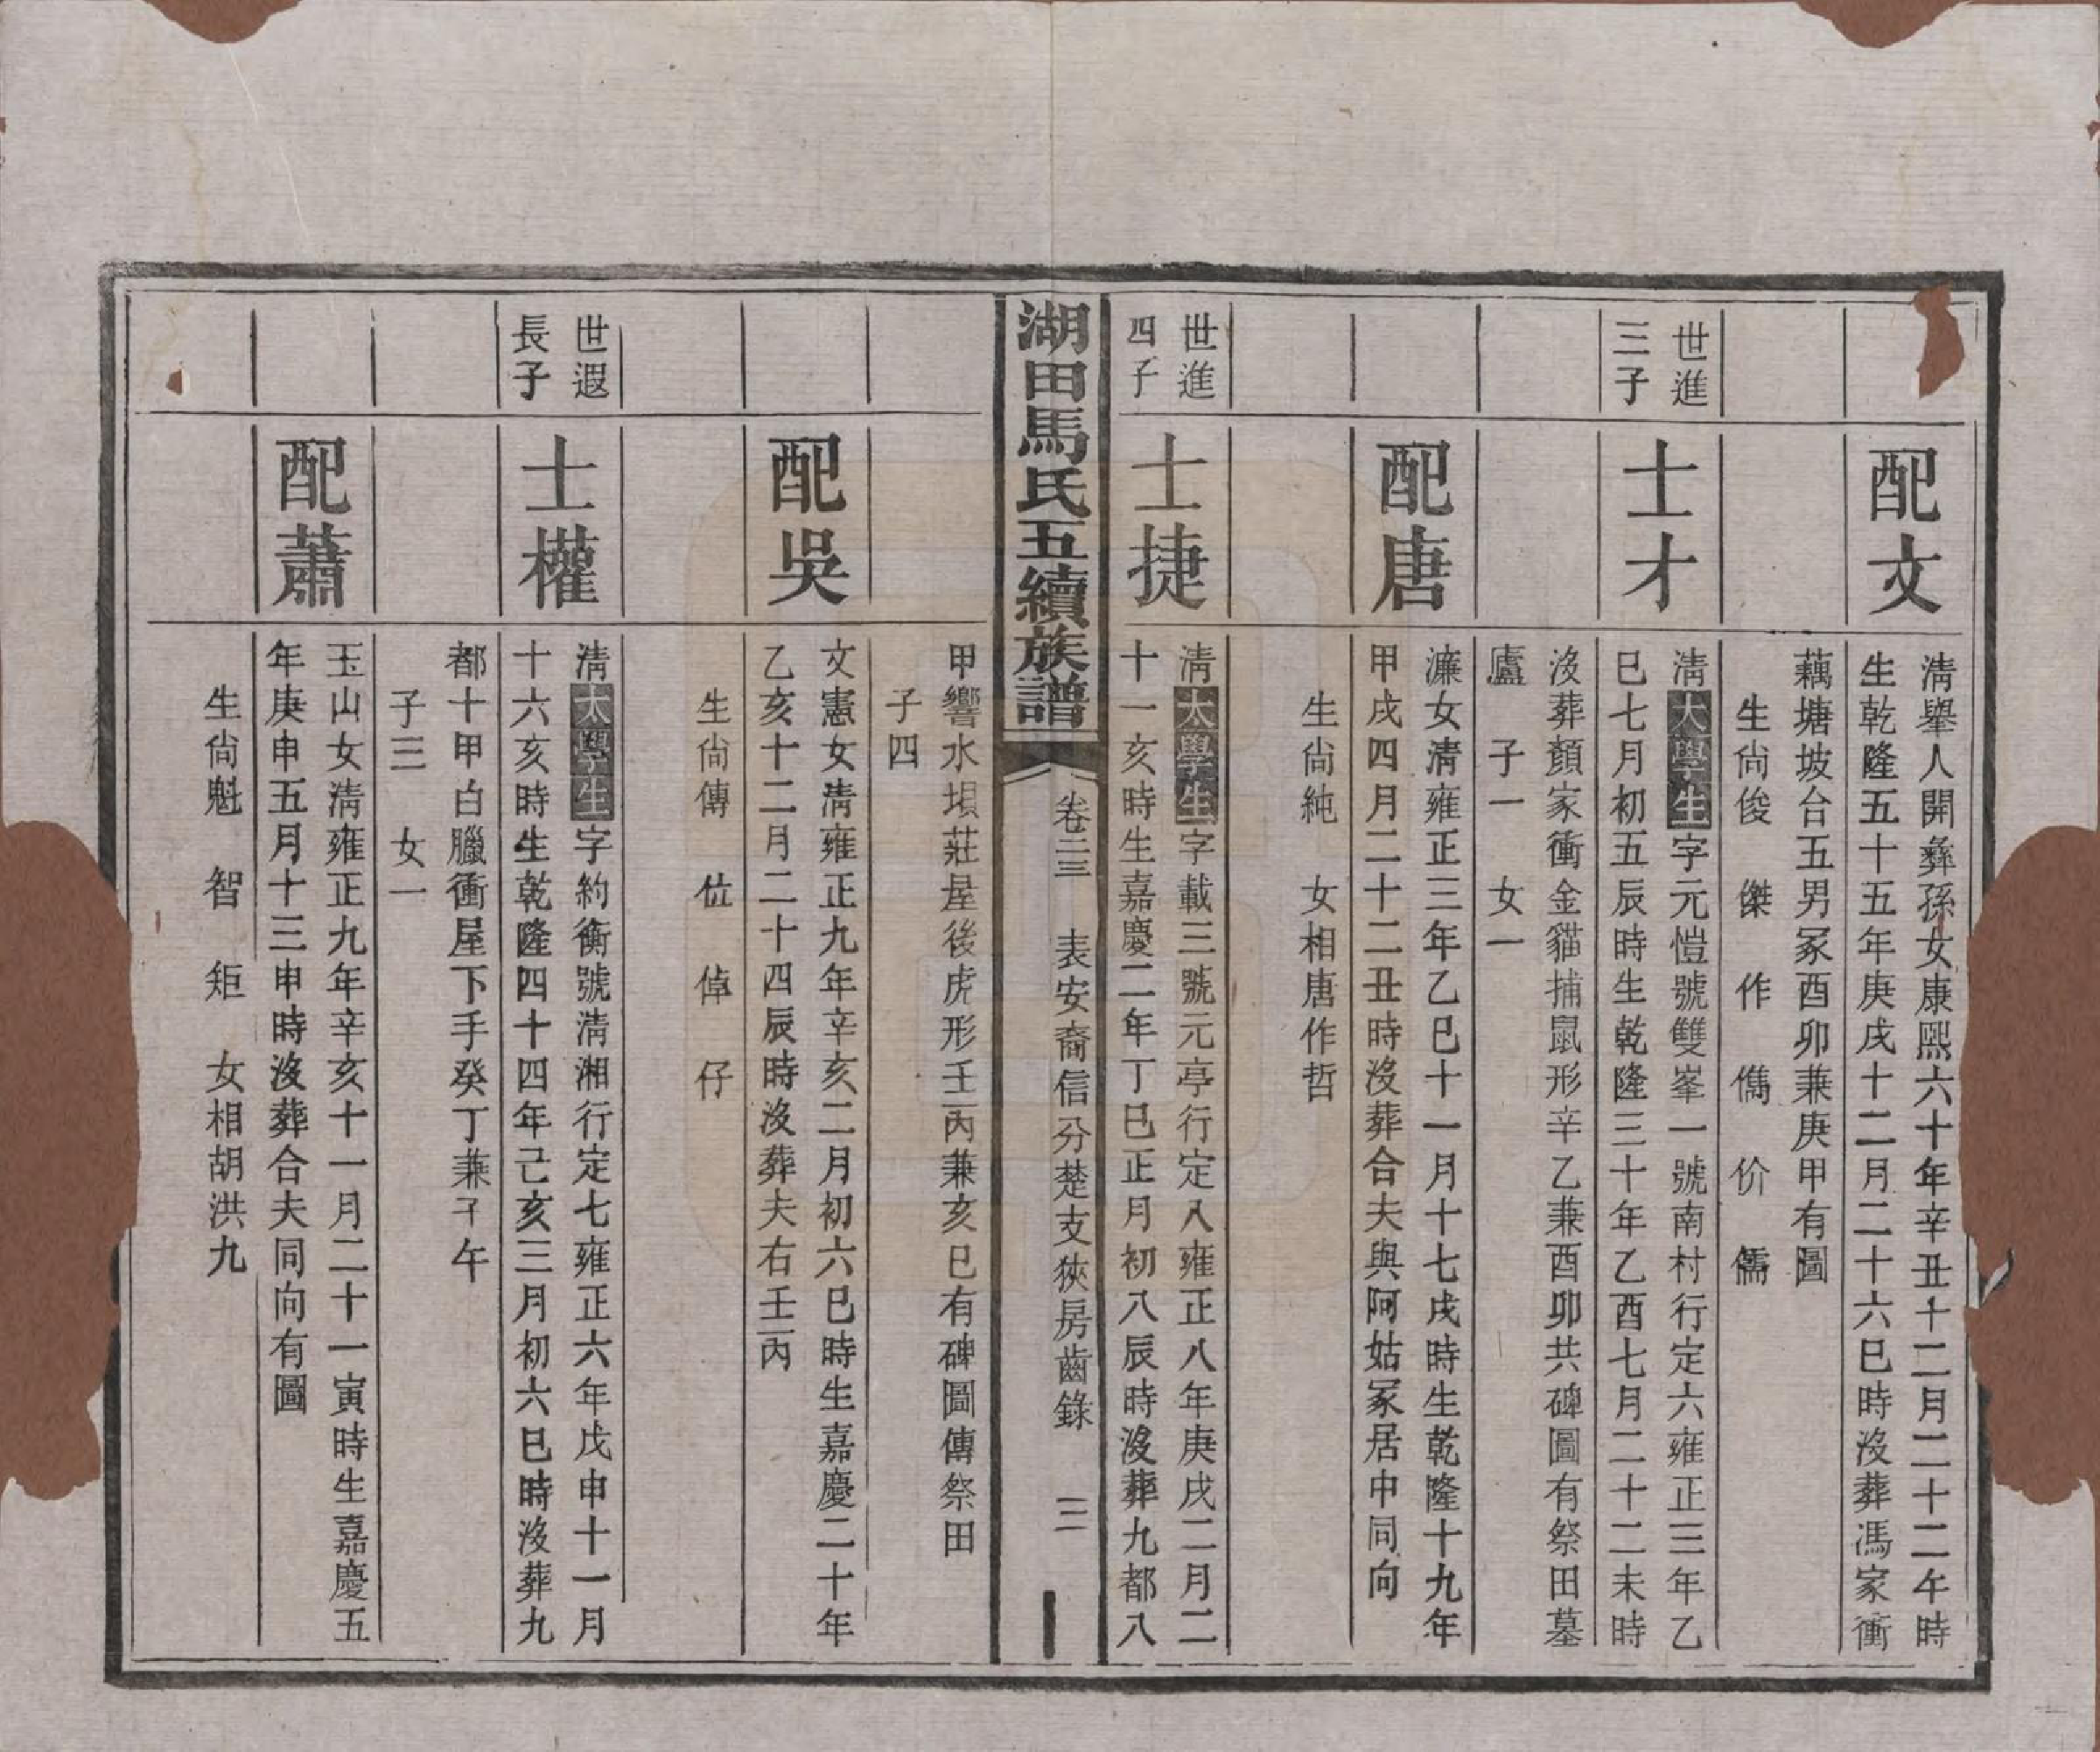 配文
清舉人開彝孫女康熙六十年辛丑十二月二十二午時
生乾隆五十五年庚戌十二月二十六巳時沒葬馮家衝
藕塘坡台五男冢酉卯兼庚甲有圖
生尙俊　傑　作　儁　价　儒
世進
三子
士才
清太學生字元愷號雙峯一號南村行定六雍正三年乙
巳七月初五辰時生乾隆三十年乙酉七月二十二未時
沒葬顏家衝金貓捕鼠形辛乙兼酉卯共碑圖有祭田墓
廬　子一　女一
配唐
濂女清雍正三年乙巳十一月十七戌時生乾隆十九年
甲戌四月二十二丑時沒葬合夫與阿姑冢居中同向
生尙純　女相唐作哲
世進
四子
士捷
清太學生字載三號元亭行定八雍正八年庚戌二月二
十一亥時生嘉慶二年丁巳正月初八辰時沒葬九都八
湖田馬氏五續族譜
卷二三　表安裔信分楚支狹房齒錄　三
甲響水垻莊屋後虎形壬丙兼亥巳有碑圖傳祭田
子四
配吳
文憲女清雍正九年辛亥二月初六巳時生嘉慶二十年
乙亥十二月二十四辰時沒葬夫右壬丙
生尙傳　位　倬　仔
世遐
長子
士權
清太學生字約衡號清湘行定七雍正六年戊申十一月
十六亥時生乾隆四十四年己亥三月初六巳時沒葬九
都十甲白臘衝屋下手癸丁兼子午
子三　女一
配蕭
玉山女清雍正九年辛亥十一月二十一寅時生嘉慶五
年庚申五月十三申時沒葬合夫同向有圖
生尙魁　智　矩　女相胡洪九